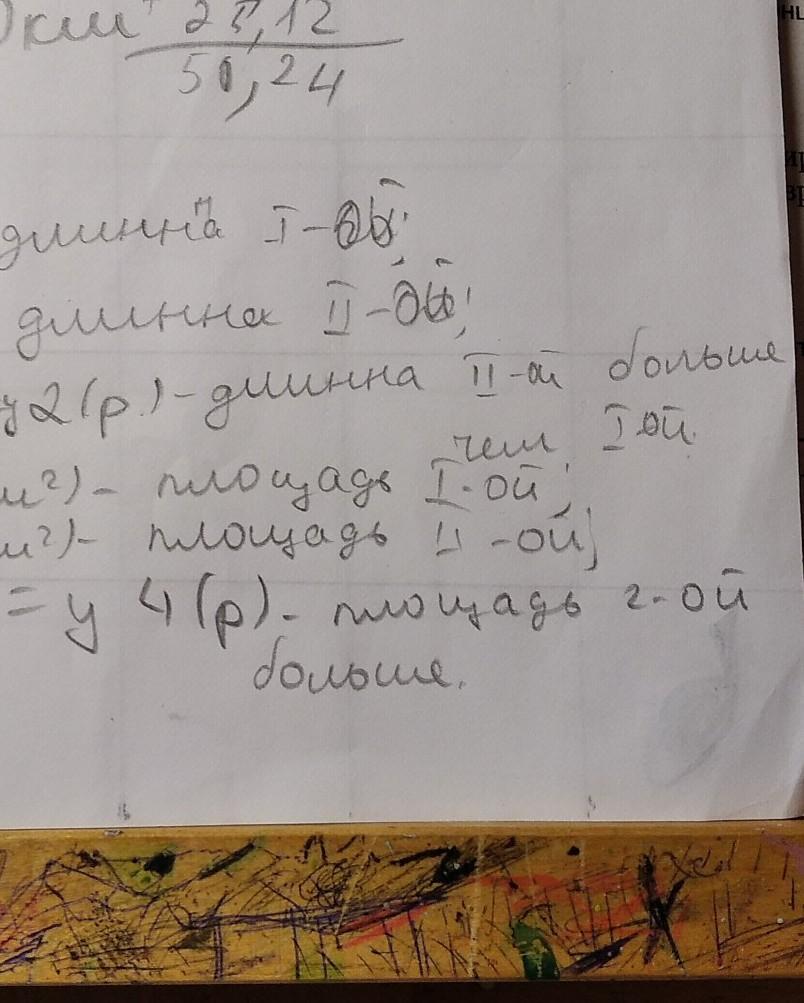 км 25,12
50,24
длинна I-ой;
длинна II-ой;
у 2(р.)-длинна II-ой больше
чем I ой.
м²)- площадь I-ой;
м²)- площадь II-ой;
= у 4(р)- площадь 2-ой
больше.